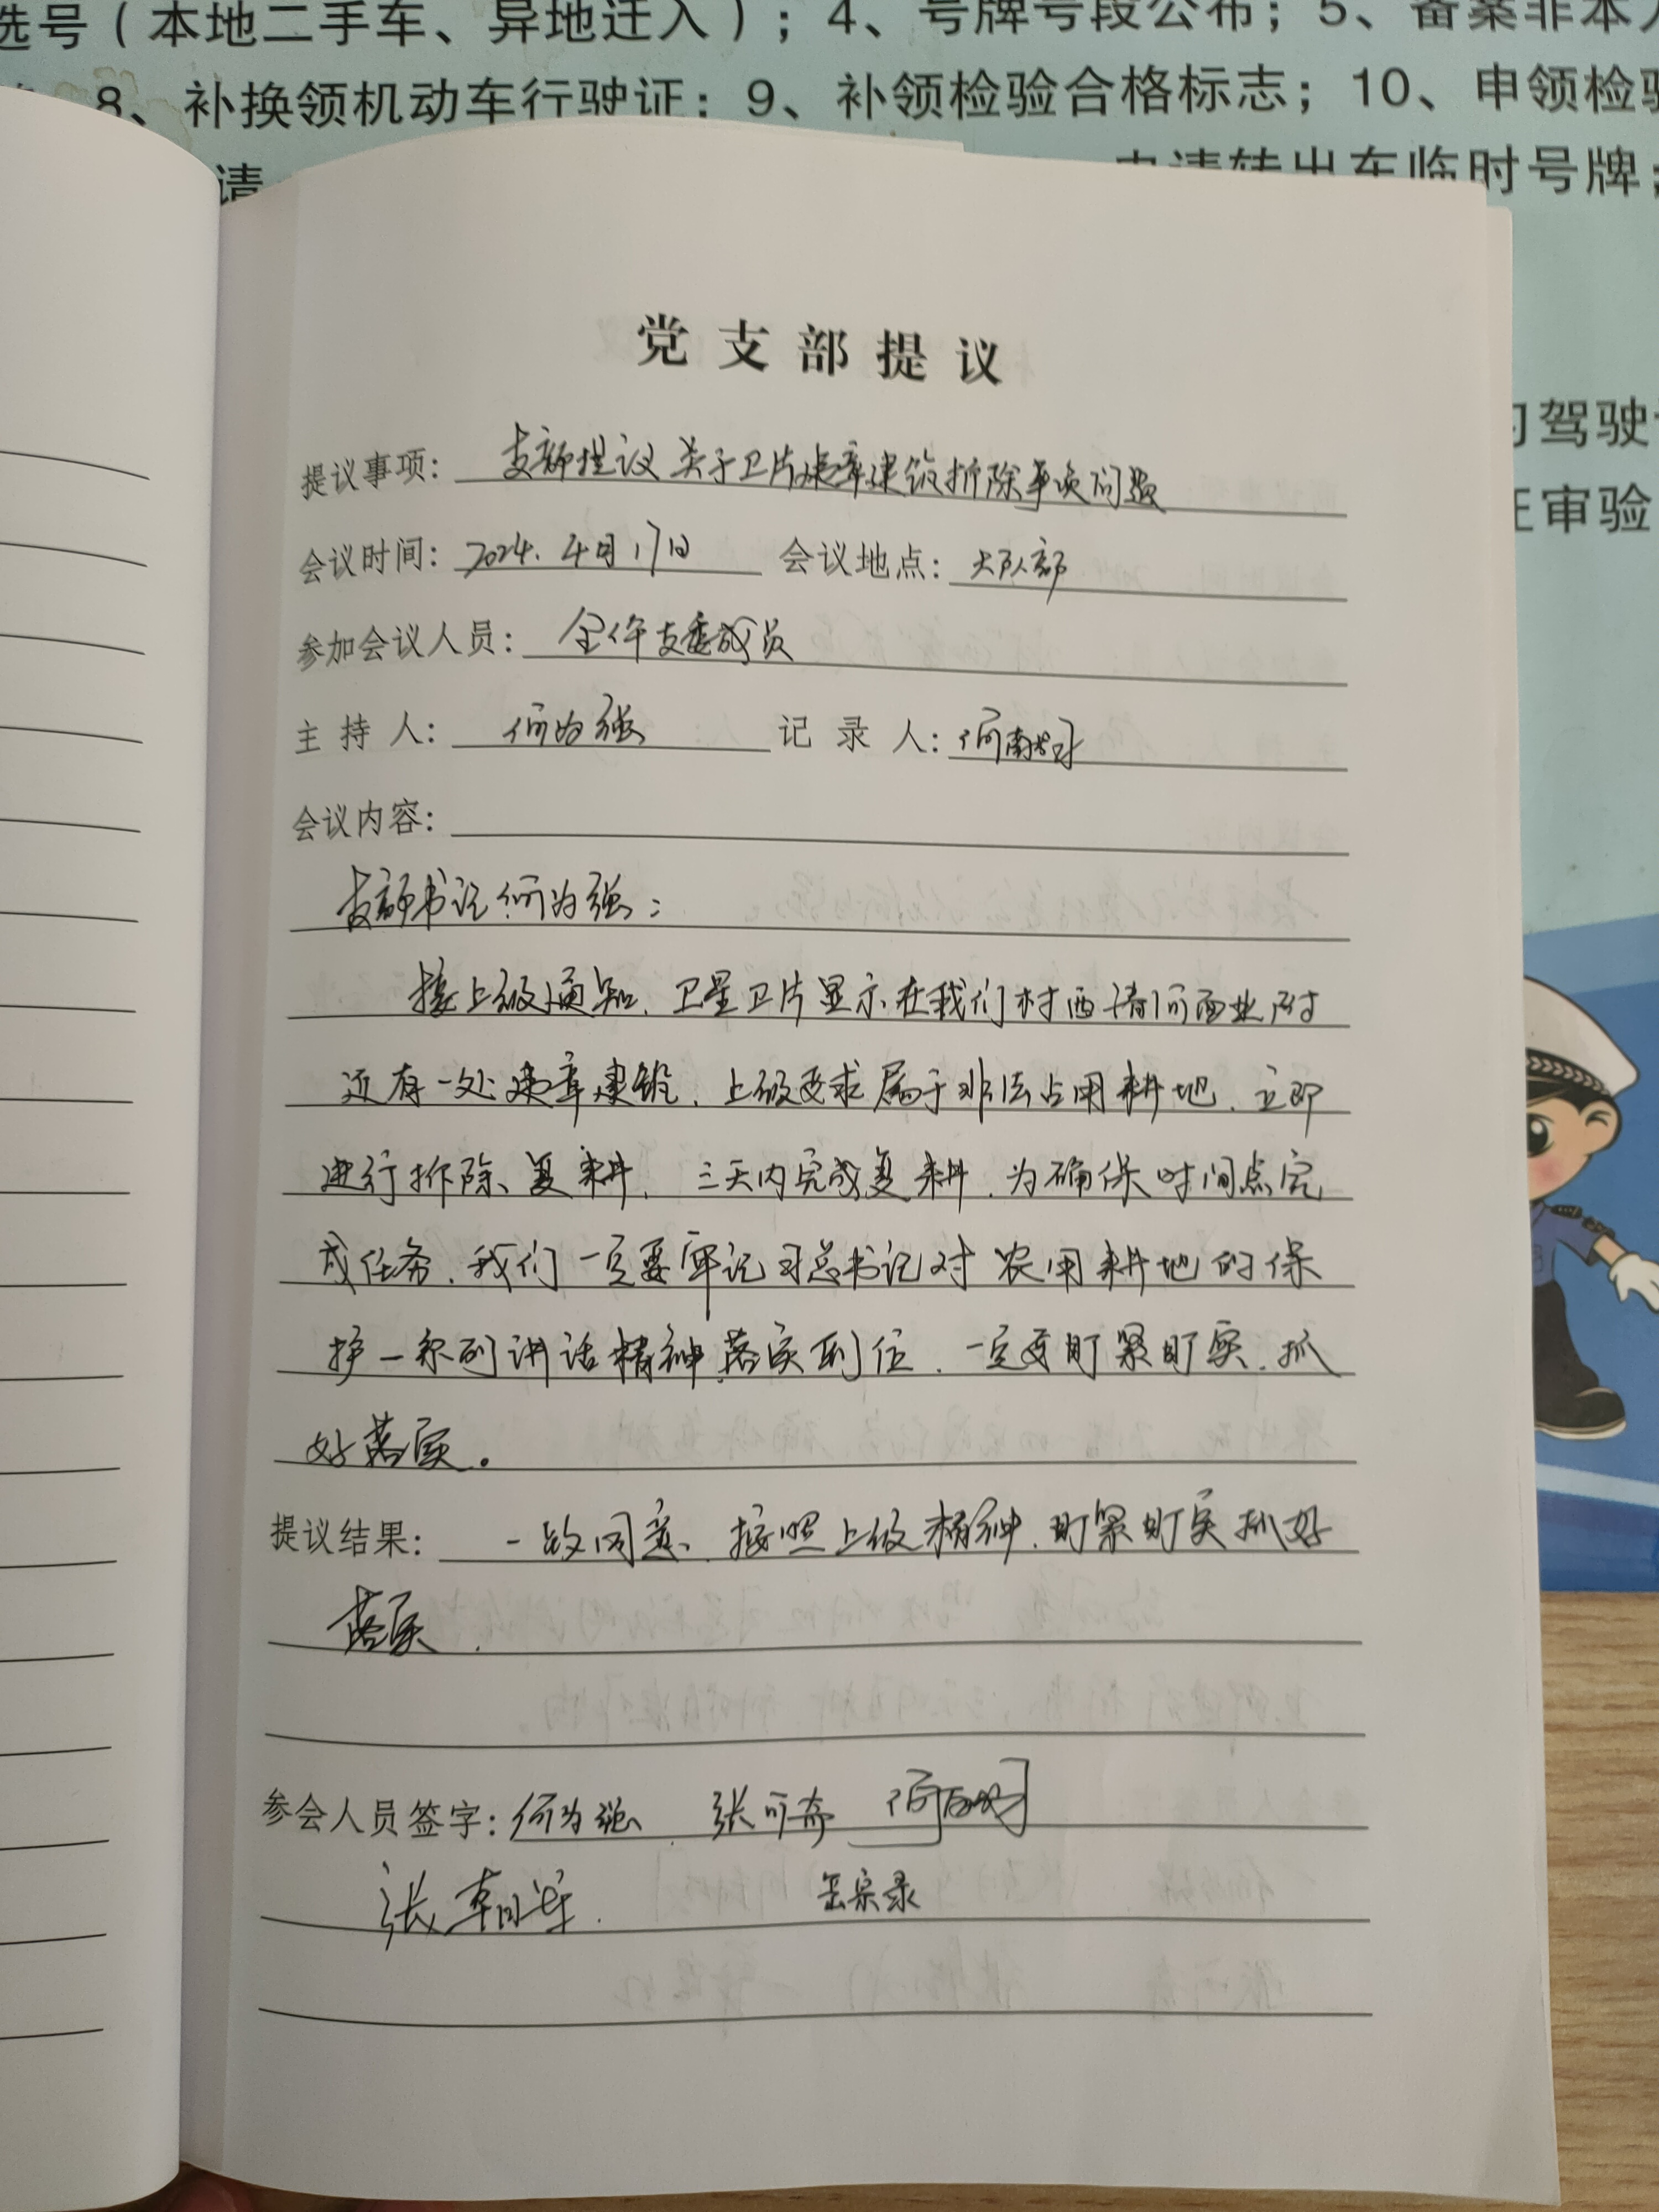 选号（本地二手车、异地迁入）；4、号牌号段公布；5、备案非本人
8、补换领机动车行驶证；9、补领检验合格标志；10、申领检验
请
申请转出车临时号牌；
习驾驶证
证审验
党支部提议
提议事项：支部提议关于卫片违章建筑拆除事项问题
会议时间：2024.4月17日 会议地点：大队部
参加会议人员：全体支委成员
主持人：何为强 记录人：何
会议内容：
支部书记何为强：
接上级通知、卫星卫片显示在我们村西清河面业附
近有一处违章建筑、上级要求属于非法占用耕地、立即
进行拆除、复耕、三天内完成复耕、为确保时间点完
成任务、我们一定要牢记习总书记对农用耕地的保
护一系列讲话精神、落实到位、一定要盯紧盯实、抓
好落实。
提议结果：一致同意、按照上级精神、盯紧盯实抓好
落实.
参会人员签字：何为强 张可奇
张朝军. 岳宗录